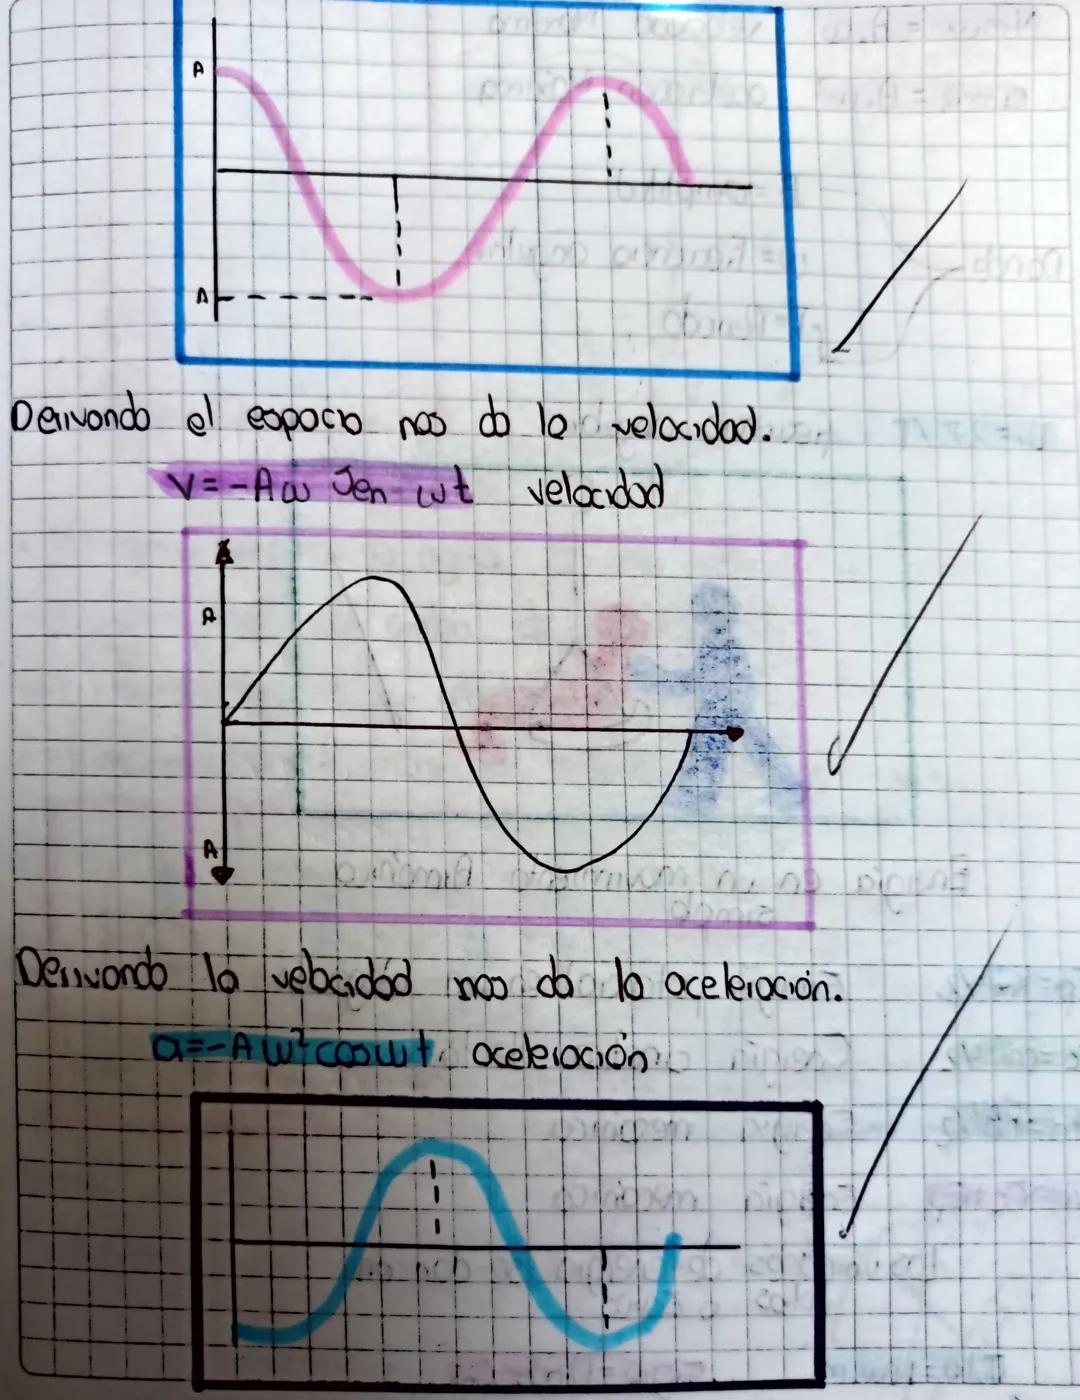 A
A
Derivando el espacio nos da la velocidad.
v=-Aω Sen ωt velocidad
A
A
Derivando la velocidad nos da la aceleración.
a=-Aω²cosωt aceleración